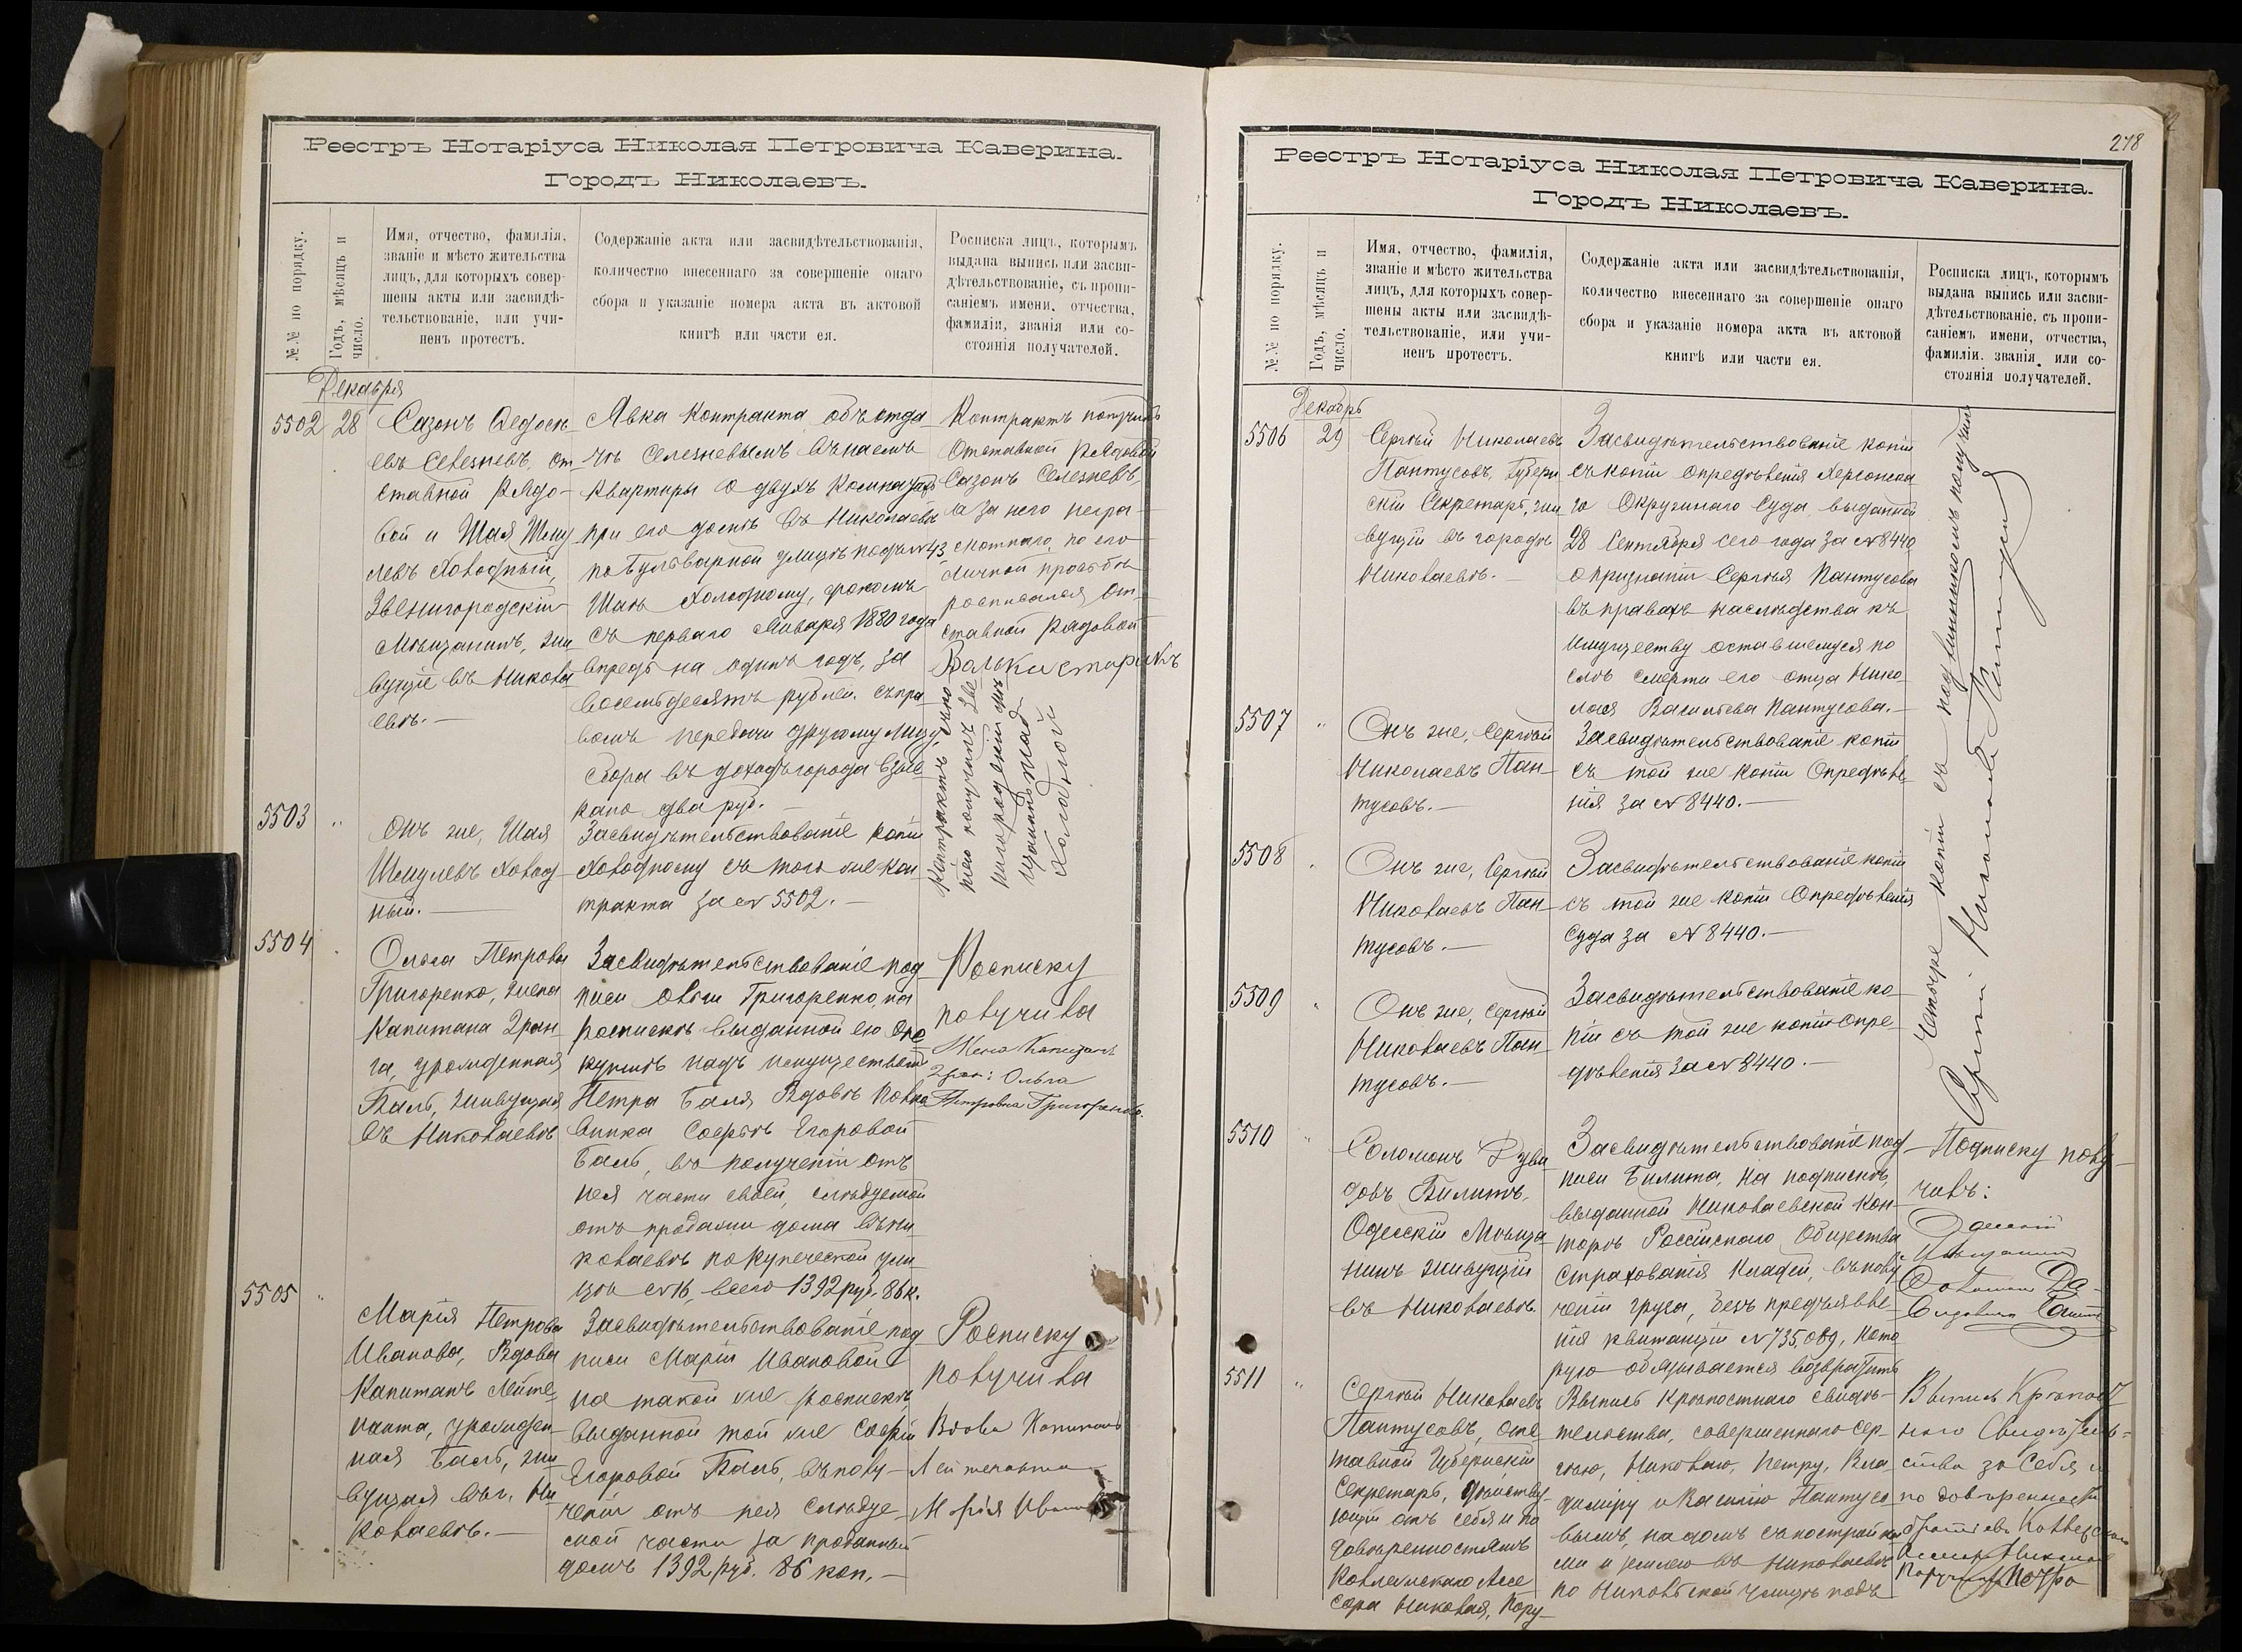 Реестръ Нотаріуса Николая Петровича Каверина.
Городъ Николаевъ.
№№ по порядку.
Годъ, мѣсяцъ и
число.
Имя, отчество, фамилія,
званіе и мѣсто жительства
лицъ, для которыхъ совер-
шены акты или засвидѣ-
тельствованіе, или учи-
ненъ протестъ.
Содержаніе акта или засвидѣтельствованія,
количество внесеннаго за совершеніе онаго
сбора и указаніе номера акта въ актовой
книгѣ или части ея.
Росписка лицъ, которымъ
выдана выпись или засви-
дѣтельствованіе, съ пропи-
саніемъ имени, отчества,
фамиліи, званія или со-
стоянія получателей.
Декабря
5502
28
Сазонъ Федосѣ-
евъ Селезневъ, от-
ставной рядо-
вой и Шая Шму-
левъ Холодный,
Звенигородскій
Мѣщанинъ, жи-
вущіе въ Никола-
евѣ.—
Явка контракта объ отда-
чѣ Селезневымъ въ наемъ
квартиры о двухъ комнатахъ
при его домѣ въ Николаевѣ
по Бульварной улицѣ подъ №43
Шаѣ Холодному, срокомъ
съ перваго Января 1880 года
впредь на одинъ годъ, за
восемьдесятъ рублей, съ пра-
вомъ передачи другому лицу,
сбора въ доходъ города взыс-
кано два руб.—
Контрактъ получилъ
Отставной рядовой
Сазонъ Селезневъ,
а за него негра-
мотнаго, по его
личной просьбѣ
росписался От-
ставной рядовой
5503
"
Онъ же, Шая
Шмулевъ Холод-
ный.—
Засвидѣтельствованіе копіи
Холодному съ того же кон-
тракта за № 5502.—
5504
Ольга Петрова
Григоренко, жена
Капитана 2 ран-
га, урожденная
Баль, живущая
въ Николаевѣ
Засвидѣтельствованіе под-
писи Ольги Григоренко, на
роспискѣ выданной ею Опе-
куншѣ надъ имуществомъ
Петра Баля Вдовѣ Полко-
вника Софьѣ Егоровой
Баль, въ полученіи отъ
нея части своей, слѣдуемой
отъ продажи дома въ Ни-
колаевѣ по Купеческой ули-
цѣ №16, всего 1392 руб. 86 к.
Росписку
получила
Жена Капитана
2 ран: Ольга
Петровна Григоренко.
5505
"
Марія Петрова
Иванова, Вдова
Капитанъ Лейте-
нанта, урожден-
ная Баль, жи-
вущая въ г. Ни-
колаевѣ.—
Засвидѣтельствованіе под-
писи Маріи Ивановой
на такой же роспискѣ,
выданной той же Софіи
Егоровой Баль, въ полу-
ченіи отъ нея слѣдуе-
мой части за проданный
домъ 1392 руб. 86 коп.—
Росписку
получила
Вдова Капитанъ
Лейтенанта
Марія
278
Реестръ Нотаріуса Николая Петровича Каверина.
Городъ Николаевъ.
№№ по порядку.
Годъ, мѣсяцъ и
число.
Имя, отчество, фамилія,
званіе и мѣсто жительства
лицъ, для которыхъ совер-
шены акты или засвидѣ-
тельствованіе, или учи-
ненъ протестъ.
Содержаніе акта или засвидѣтельствованія,
количество внесеннаго за совершеніе онаго
сбора и указаніе номера акта въ актовой
книгѣ или части ея.
Росписка лицъ, которымъ
выдана выпись или засви-
дѣтельствованіе, съ пропи-
саніемъ имени, отчества,
фамиліи, званія или со-
стоянія получателей.
Декабрь
5506
29
Сергѣй Николаевъ
Пантусовъ, Губерн-
скій Секретарь, жи-
вущій въ городѣ
Николаевѣ.—
Засвидѣтельствованіе копіи
съ копіи опредѣленія Херсонска-
го Окружнаго Суда, выданной
28 Сентября сего года за №8440
о признаніи Сергѣя Пантусова
въ правахъ наслѣдства къ
имуществу оставшемуся по-
слѣ смерти его отца Нико-
лая Васильева Пантусова.—
Четыре копіи съ подлинникомъ получилъ
5507
"
Онъ же, Сергѣй
Николаевъ Пан-
тусовъ.—
Засвидѣтельствованіе копіи
съ той же копіи Опредѣле-
нія за №8440.—
5508
Онъ же, Сергѣй
Николаевъ Пан-
тусовъ.—
Засвидѣтельствованіе копіи
съ той же копіи Опредѣленія
Суда за №8440.—
5509
"
Онъ же, Сергѣй
Николаевъ Пан-
тусовъ.—
Засвидѣтельствованіе ко-
піи съ той же копіи Опре-
дѣленія за №8440.—
5510
"
Соломонъ Дуви-
довъ Билитъ,
Одесскій Мѣща-
нинъ живущій
въ Николаевѣ.
Засвидѣтельствованіе под-
писи Билита, на подпискѣ,
выданной Николаевской Кон-
торѣ Россійскаго Общества
страхованія кладей, въ полу-
ченіи груза, безъ предъявле-
нія квитанціи №735,089, кото-
рую обязывается возвратить
Подписку полу-
чилъ:
Одесскій
Мѣщанинъ
5511
"
Сергѣй Николаевъ
Пантусовъ, Отс-
тавной Губернскій
Секретарь, дѣйству-
ющій отъ себя и по
довѣренностямъ
Коллежскаго Асе-
сора Николая, Пору-
Выпись Крѣпостнаго свидѣ-
тельства, совершеннаго Сер-
гѣю, Николаю, Петру, Вла-
диміру и Василію Пантусо-
вымъ, на домъ съ построй ка-
ми и землею въ Николаевѣ
по Никольской улицѣ подъ
Выпись Крѣпост-
наго Свидѣтель-
ства за себя и
по довѣренности